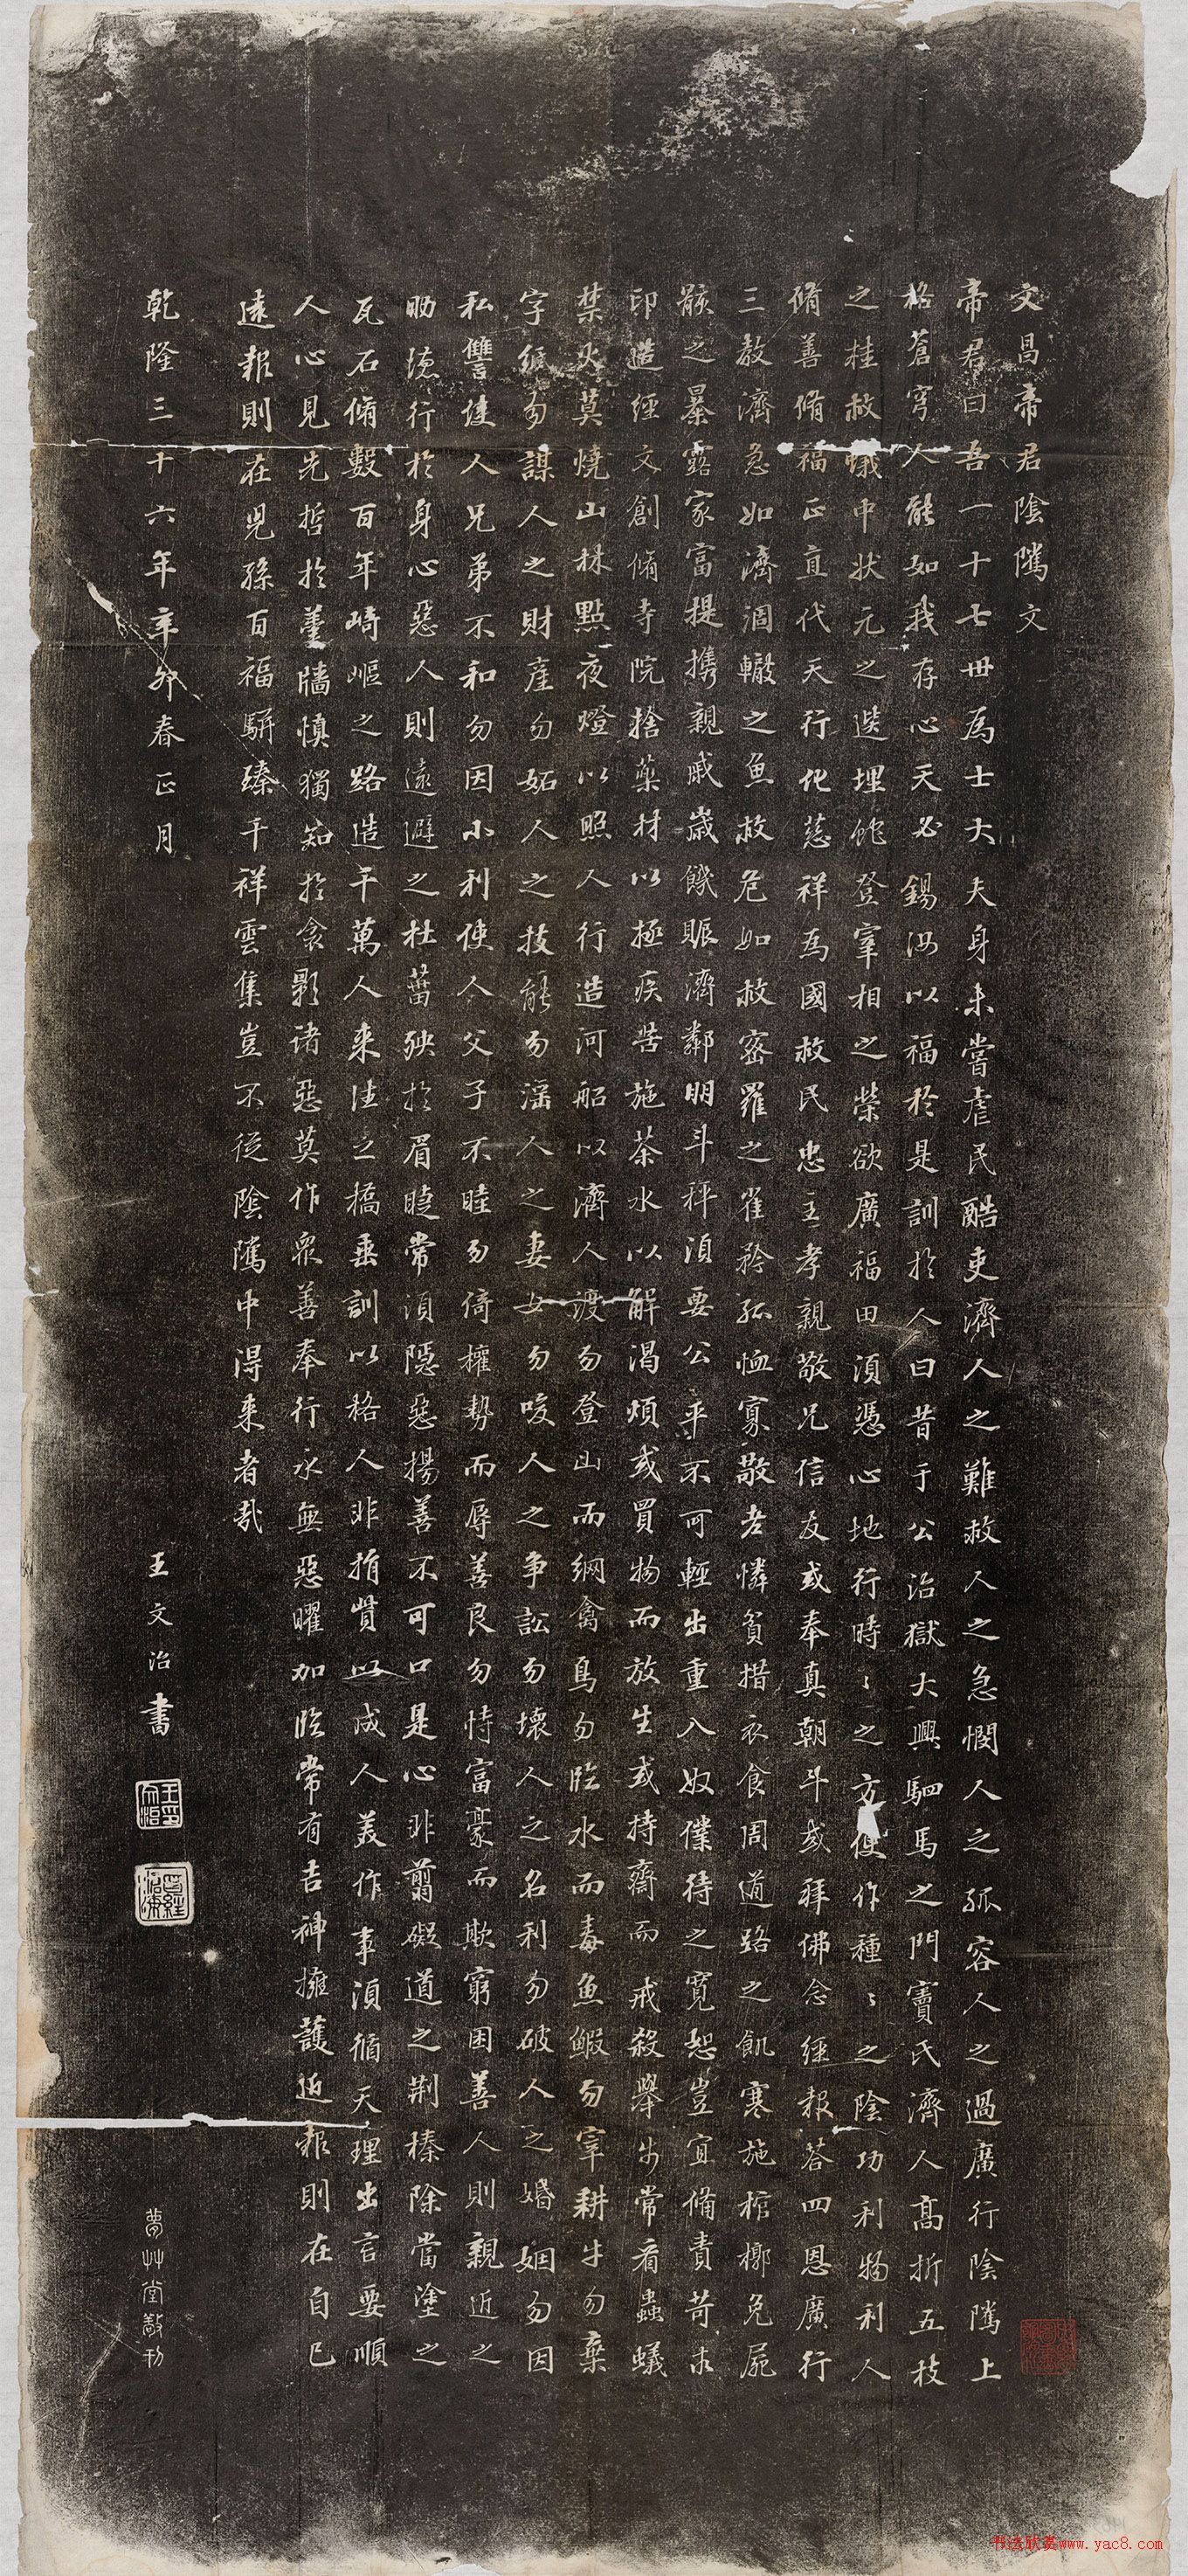 文昌帝君陰騭文
帝君曰吾一十七世為士大夫身未嘗虐民酷吏濟人之難救人之急憫人之孤容人之過廣行陰騭上
格蒼穹人能如我存心天必錫汝以福於是訓於人曰昔于公治獄大興駟馬之門竇氏濟人高折五枝
之桂救蟻中狀元之選埋蛇登宰相之榮欲廣福田湏憑心地行時〻之方便作種〻之陰功利物利人
脩善脩福正直代天行化慈祥為國救民忠主孝親敬兄信友或奉真朝斗或拜佛念經報荅四恩廣行
三教濟急如濟涸轍之魚救危如救密羅之雀矜孤恤寡敬老憐貧措衣食周道路之飢寒施棺槨免屍
骸之暴露家富提攜親戚歲饑賑濟鄰朋斗秤湏要公平不可輕出重入奴僕待之寬恕豈宜備責苛求
印造經文創脩寺院捨藥材以拯疾苦施茶水以解渴煩或買物而放生或持齋而戒殺舉步常看蟲蟻
禁火莫燒山林點夜燈以照人行造河船以濟人渡勿登山而網禽鳥勿臨水而毒魚蝦勿宰耕牛勿棄
字紙勿謀人之財產勿妬人之技能勿淫人之妻女勿唆人之争訟勿壞人之名利勿破人之婚姻勿因
私讐使人兄弟不和勿因小利使人父子不睦勿倚權勢而辱善良勿恃富豪而欺窮困善人則親近之
助德行於身心惡人則遠避之杜菑殃於眉睫常湏隱惡揚善不可口是心非翦礙道之荆榛除當塗之
瓦石脩數百年崎嶇之路造千萬人来往之橋垂訓以格人非捐貲以成人美作事湏循天理出言要順
人心見先哲於羹牆慎獨知於衾影诸惡莫作衆善奉行永無惡曜加臨常有吉神擁護近報則在自己
遠報則在兒孫百福駢臻千祥雲集豈不從陰騭中得来者哉
乾隆三十六年辛卯春正月
王文治書
王文治印
曾經滄海
夢艸堂敬刊
书法欣赏www.yac8.com